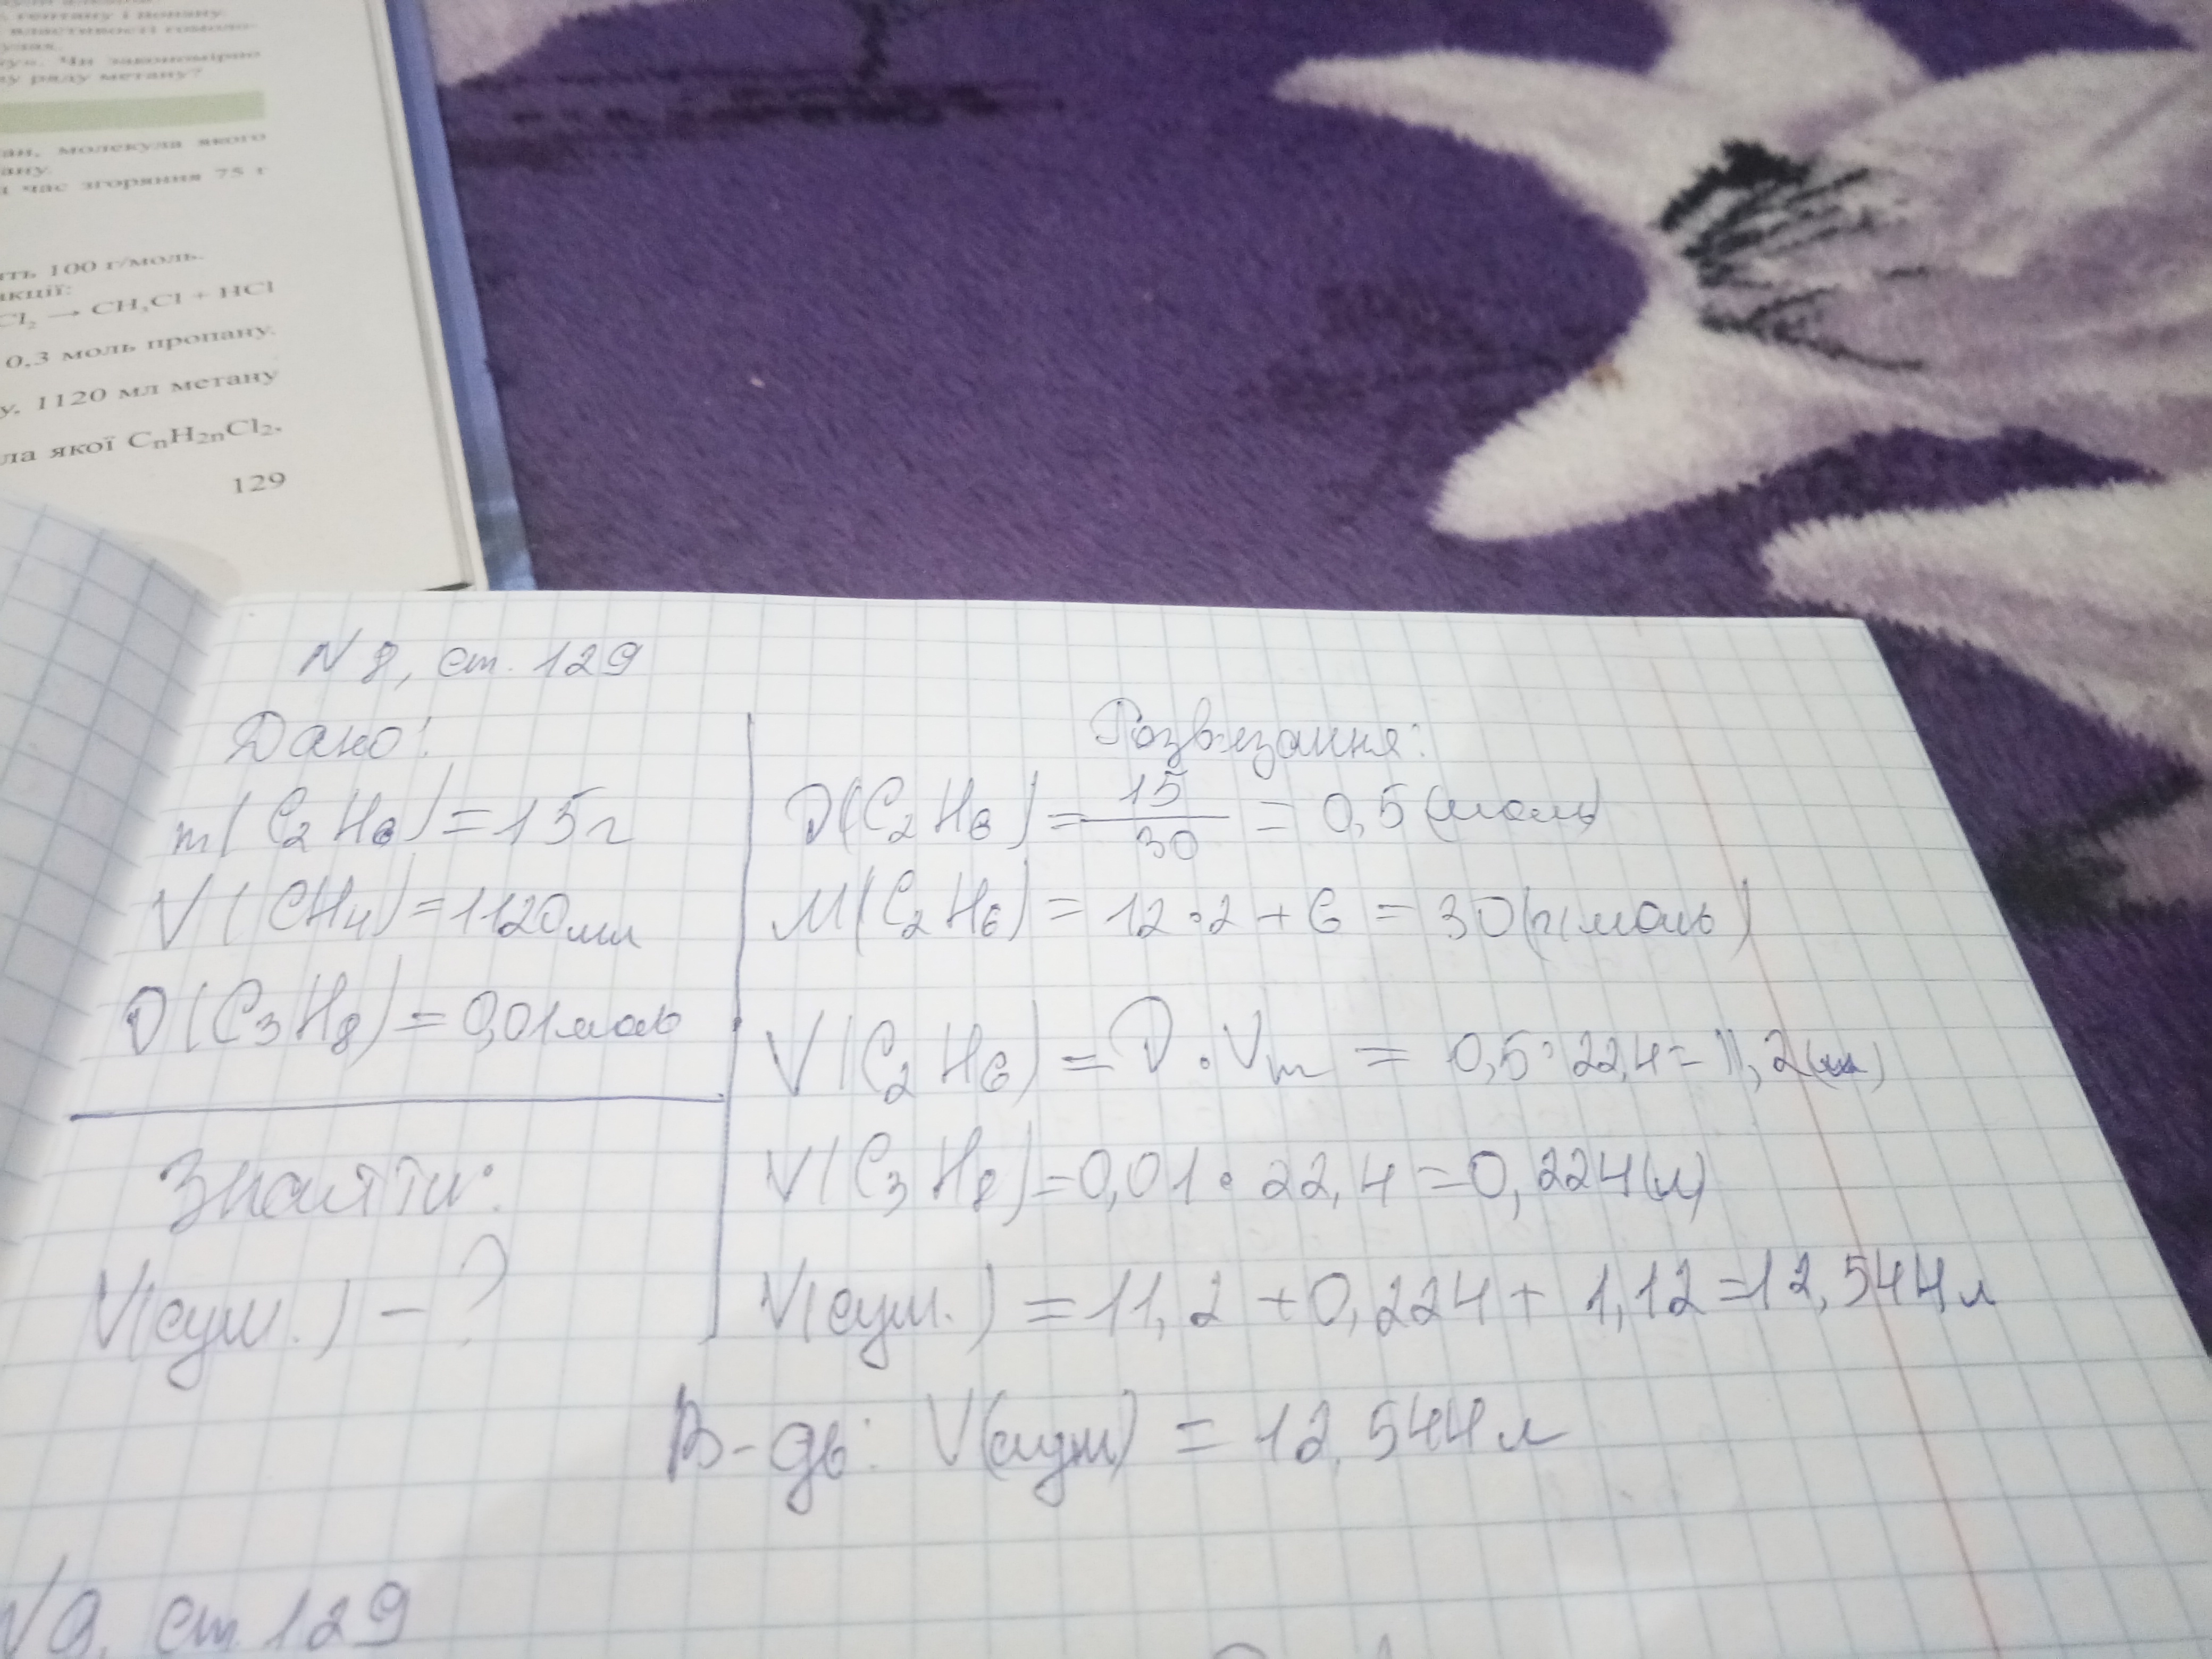 гептану і нонану.
властивості гомоло-
Чи закономірно
ряду метану?
молекула якого
ану.
час згоряння 75 г
100 г/моль.
акції:
Cl₂ → CH₃Cl + HCl
0,3 моль пропану.
у, 1120 мл метану
ла якої CₙH₂ₙCl₂.
129
N 8, ст. 129
Дано:
m(C₂H₆) = 15г
V(CH₄) = 1120мл
ν(C₃H₈) = 0,01моль
Знайти:
V(сум.) - ?
Розв'язання:
ν(C₂H₆) = 15/30 = 0,5 (моль)
M(C₂H₆) = 12·2 + 6 = 30(г/моль)
V(C₂H₆) = ν · Vm = 0,5·22,4 = 11,2(л)
V(C₃H₈) = 0,01 · 22,4 = 0,224(л)
V(сум.) = 11,2 + 0,224 + 1,12 = 12,544л
В-дь: V(сум) = 12,544л
N9, ст 129